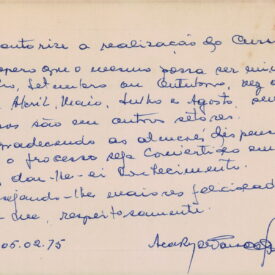 autorize a realização do Curs
espero que o mesmo possa ser mi
Setembro ou Outubro, vez q
Abril, Maio, Junho e Agosto,
sos são em outros setores.
gradecendo as atenções dispens
o processo seja convertido em
dar-lhe-ei conhecimento.
sejando-lhe maiores felicidad
respeitosamente.
05.02.75